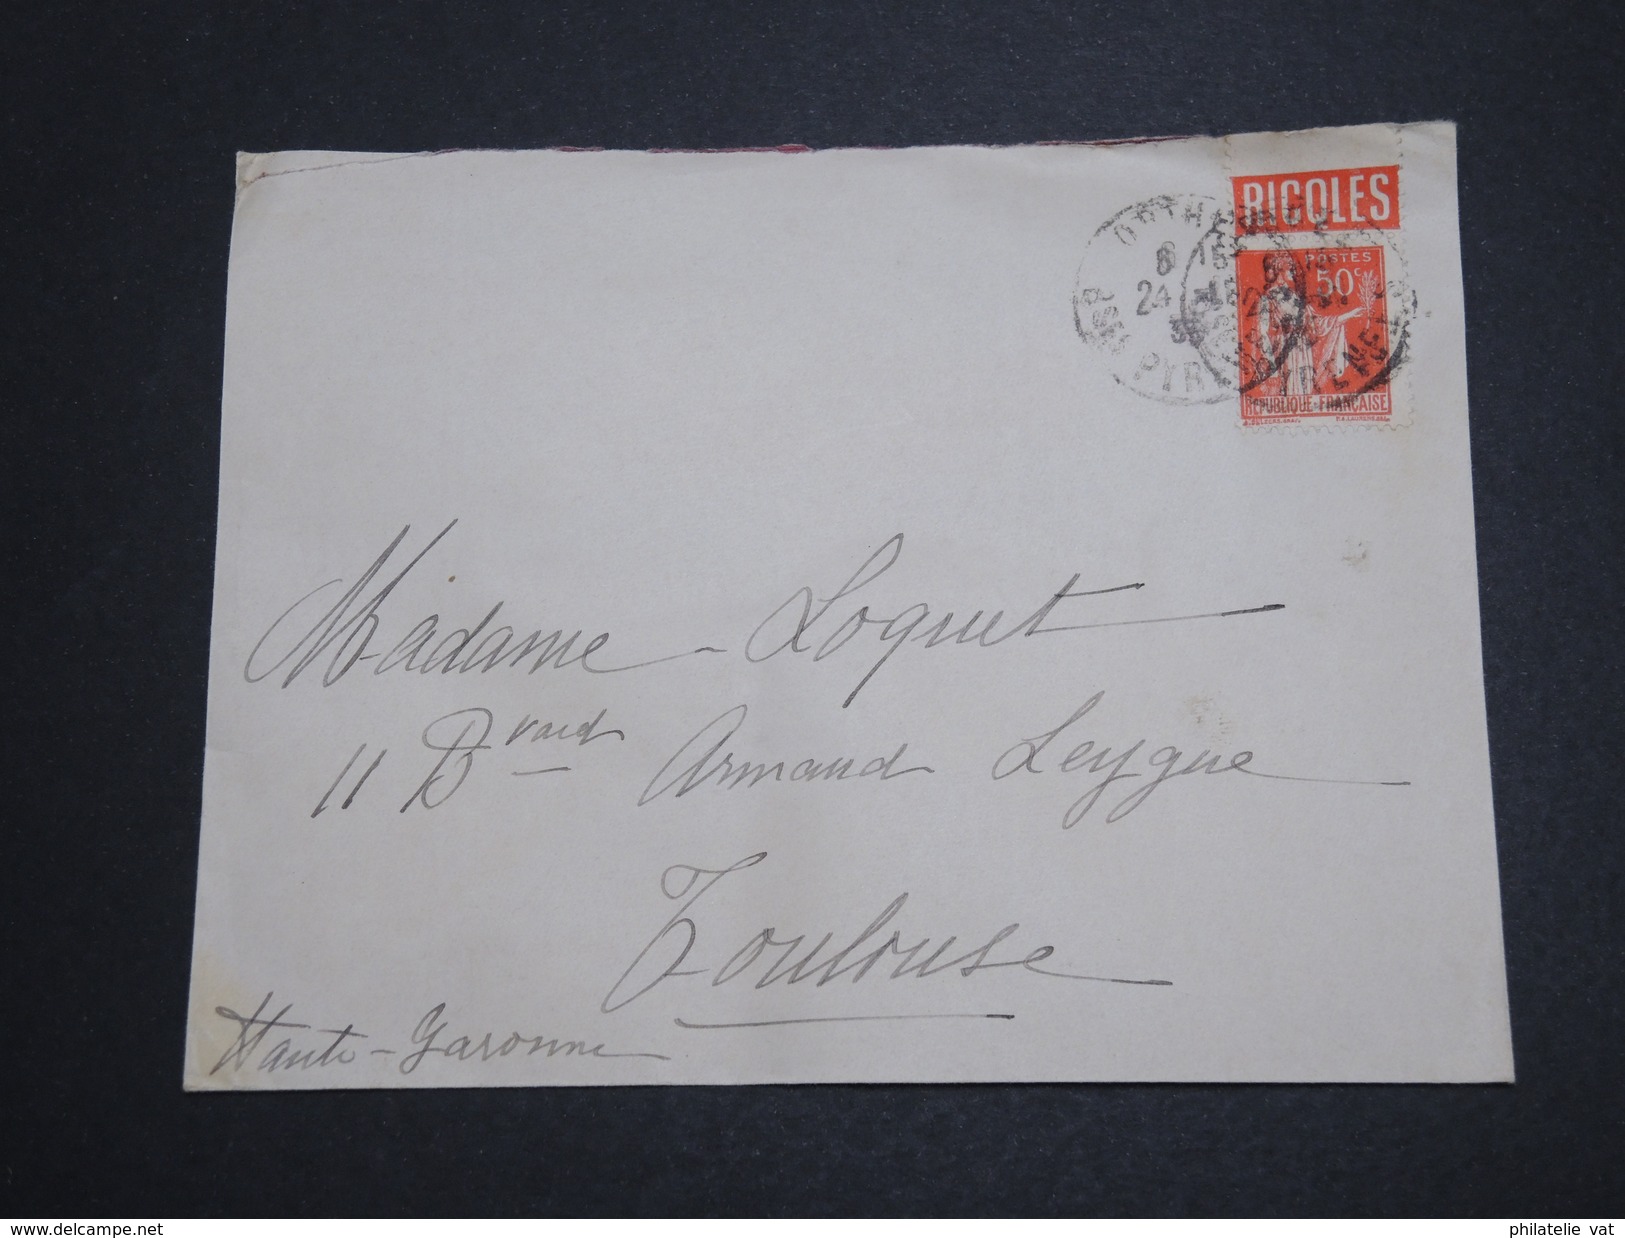 RICQLÈS
POSTES
50c
RÉPUBLIQUE FRANÇAISE
Madame Loquet
11 Bvard Armand Leygue
Toulouse
Haute-Garonne
www.delcampe.net
philatelie vat